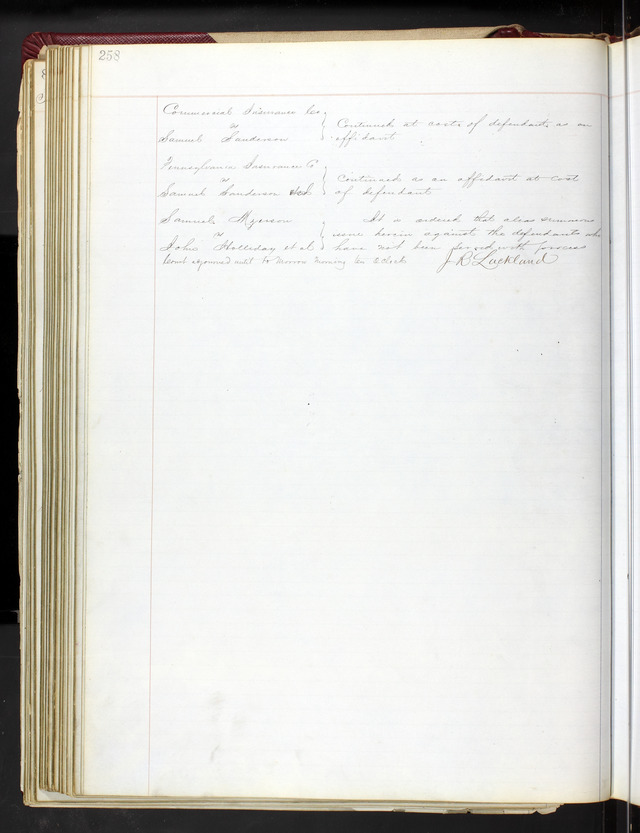 258
Commercial Insurance Co
vs
Samuel Sanderson
Continued at costs of defendants as on
affidavit
Pennsylvania Insurance Co
vs
Samuel Sanderson et al
Continued as on affidavit at cost
of defendant
Samuel Myerson
vs
John Holleday et al
It is ordered that alias summons
issue herein against the defendants who
have not been served with process
Court adjourned until to Morrow Morning ten O'clock
J R Lackland